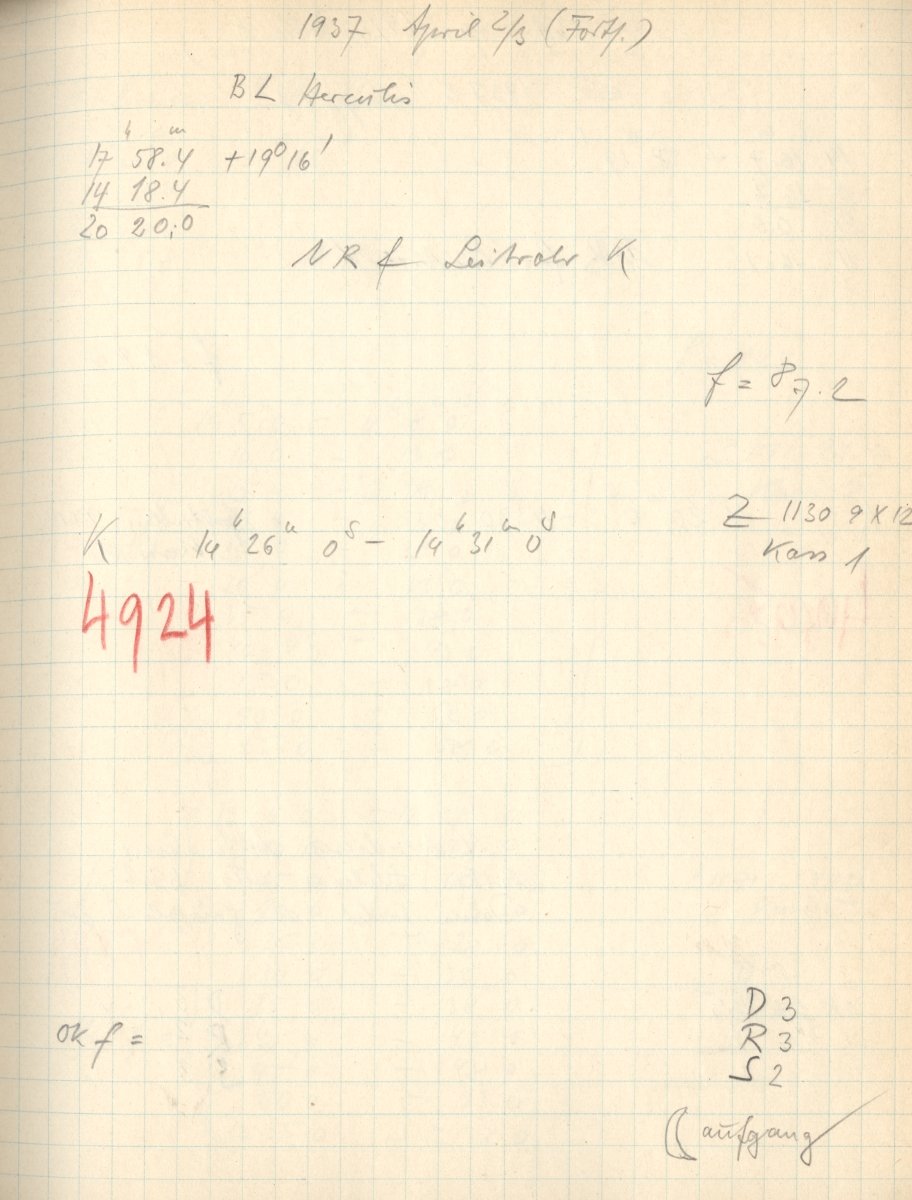 1937 April 2/3 (Forts.)
BL Herculis
17ʰ 58.4ᵐ +19° 16'
14 18.4
20 20,0
NR f Leitrohr K
f = 87.2
K 14ʰ 26ᵐ 0ˢ – 14ʰ 31ᵐ 0ˢ
Z 1130 9 X 12
Kass 1
4924
D 3
R 3
OK f =
S 2
☾ aufgang